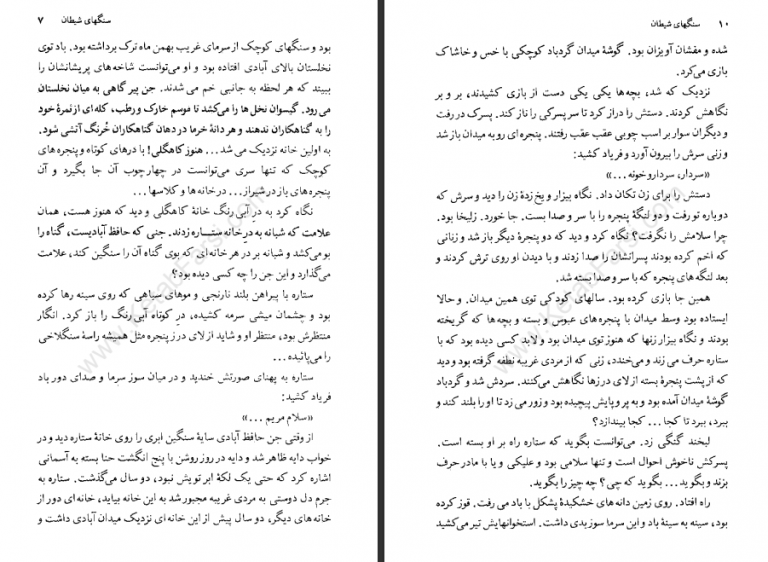 ۱۰ سنگهای شیطان
شده و مقشان آویزان بود. گوشهٔ میدان گردباد کوچکی با خس و خاشاک
بازی می‌کرد.
نزدیک که شد، بچه‌ها یکی یکی دست از بازی کشیدند، بر و بر
نگاهش کردند. دستش را دراز کرد تا سر پسرکی را ناز کند. پسرک در رفت
و دیگران سوار بر اسب چوبی عقب عقب رفتند. پنجره‌ای رو به میدان باز شد
و زنی سرش را بیرون آورد و فریاد کشید:
«سردار، سردارو خونه...»
دستش را برای زن تکان داد. نگاه بیزار و یخ‌زدهٔ زن را دید و سرش که
دوباره تو رفت و دو لنگهٔ پنجره را با سر و صدا بست. جا خورد. زلیخا بود.
چرا سلامش را نگرفت؟ نگاه کرد و دید که دو پنجرهٔ دیگر باز شد و زنانی
که اخم کرده بودند پسرانشان را صدا زدند و با دیدن او روی ترش کردند و
بعد لنگه‌های پنجره که با سر و صدا بسته شد.
همین جا بازی کرده بود. سالهای کودکی توی همین میدان. و حالا
ایستاده بود وسط میدان با پنجره‌های عبوس و بسته و بچه‌ها که گریخته
بودند و نگاه بیزار زنها که هنوز توی میدان بود و لابد کسی دیده بود که
ستاره حرف می زند و می‌خندد، زنی که از مردی غریبه نطفه گرفته بود و دید
که از پشت پنجرهٔ بسته از لای درزها نگاهش می‌کنند. سردش شد و گردباد
گوشهٔ میدان آمده بود و به پر و پایش پیچیده بود و زور می زد تا او را بلند کند و
ببرد، ببرد تا کجا... کجا بیندازد؟
لبخند گنگی زد. می‌توانست بگوید که ستاره راه بر او بسته است.
پسرکش ناخوش احوال است و تنها سلامی بود و علیکی و یا با مادر حرف
بزند و بگوید... بگوید که چی؟ چه چیز را بگوید.
راه افتاد. روی زمین دانه‌های خشکیدهٔ پشکل با باد می رفت. قوز کرده
بود، سینه به سینهٔ باد و این سرما سوز بدی داشت. استخوانهایش تیر می‌کشید
سنگهای شیطان ۷
بود و سنگهای کوچک از سرمای غریب بهمن ماه ترک برداشته بود. باد توی
نخلستان بالای آبادی افتاده بود و او می‌توانست شاخه های پریشانشان را
ببیند که هر لحظه به جانبی خم می شدند. جن پیر گاهی به میان نخلستان
می رود. گیسوان نخل ها را می‌کشد تا موسم خارک و رطب، کله‌ای از ثمرهٔ خود
را به گناهکاران ندهند و هر دانهٔ خرما در دهان گناهکاران خُرنگ آتشی شود.
به اولین خانه نزدیک می شد... هنوز کاهگلی! با درهای کوتاه و پنجره‌های
کوچک که تنها سری می‌توانست در چهارچوب آن جا بگیرد و آن
پنجره‌های باز در شیراز... در خانه ها و کلاسها...
نگاه کرد به درِ آبی رنگ خانهٔ کاهگلی و دید که هنوز هست، همان
علامت که شبانه به در خانه ستاره زدند. جنی که حافظ آبادیست، گناه را
بو می‌کشد و شبانه بر در هر خانه ای که بوی گناه آن را سنگین کند، علامت
می‌گذارد و این جن را چه کسی دیده بود؟
ستاره با پیراهن بلند نارنجی و موهای سیاهی که روی سینه رها کرده
بود و چشمان میشی سرمه کشیده، درِ کوتاه آبی رنگ را باز کرد. انگار
منتظرش بود، منتظر او و شاید از لای درز پنجره مثل همیشه راسهٔ سنگلاخی
را می‌پائیده...
ستاره به پهنای صورتش خندید و در میان سوز سرما و صدای دور باد
فریاد کشید:
«سلام مریم...»
از وقتی جن حافظ آبادی سایهٔ سنگین ابری را روی خانهٔ ستاره دید و در
خواب دایه ظاهر شد و دایه در روز روشن با پنج انگشت حنا بسته به آسمانی
اشاره کرد که حتی یک لکهٔ ابر تویش نبود، دو سال می‌گذشت. ستاره به
جرم دل دوستی به مردی غریبه مجبور شد به این خانه بیاید، خانه‌ای دور از
خانه های دیگر، دو سال پیش از این خانه ای نزدیک میدان آبادی داشت و
www.KetabFarsi.com
www.KetabFarsi.com